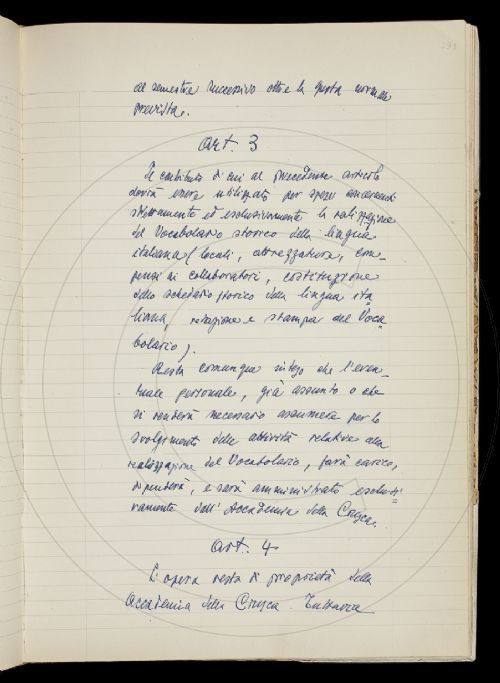 al semestre successivo oltre la quota normale
prevista.
Art. 3
Il contributo di cui al precedente articolo
dovrà essere utilizzato per spese concernenti
strettamente ed esclusivamente la realizzazione
del Vocabolario storico della lingua
italiana (locali, attrezzatura, com-
pensi ai collaboratori, costituzione
dello schedario storico della lingua ita-
liana, redazione e stampa del Voca-
bolario).
Resta comunque inteso che l'even-
tuale personale, già assunto o che
si renderà necessario assumere per lo
svolgimento delle attività relative alla
realizzazione del Vocabolario, farà carico,
dipenderà, e sarà amministrato esclusi-
vamente dall'Accademia della Crusca.
Art. 4
L'opera resta di proprietà della
Accademia della Crusca. Tuttavia